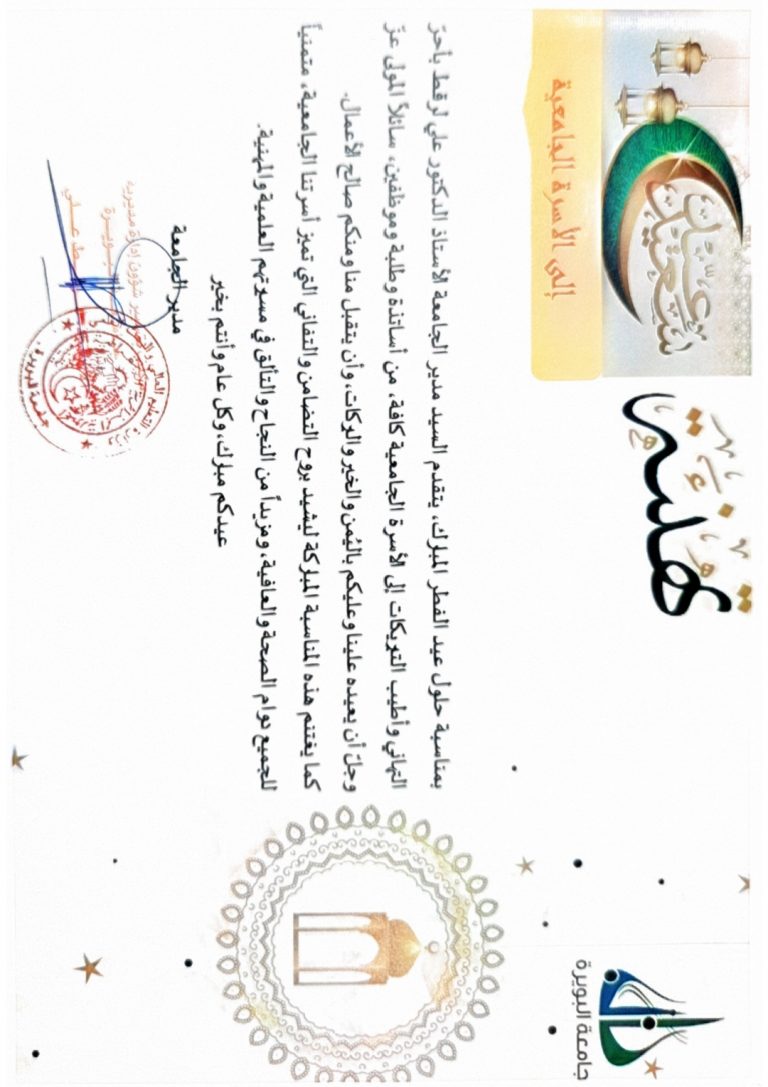 جامعة البويرة
تهنئة
عيدكم سعيد
إلى الأسرة الجامعية
بمناسبة حلول عيد الفطر المبارك، يتقدم السيد مدير الجامعة الأستاذ الدكتور علي لرقط بأحرّ
التهاني وأطيب التبريكات إلى الأسرة الجامعية كافة، من أساتذة وطلبة وموظفين، سائلاً المولى عزّ
وجلّ أن يعيده علينا وعليكم باليُمن والخير والبركات، وأن يتقبل منا ومنكم صالح الأعمال.
كما يغتنم هذه المناسبة المباركة ليشيد بروح التضامن والتفاني التي تميز أسرتنا الجامعية، متمنياً
للجميع دوام الصحة والعافية، ومزيداً من النجاح والتألق في مسيرتهم العلمية والمهنية.
عيدكم مبارك، وكل عام وأنتم بخير
مدير الجامعة